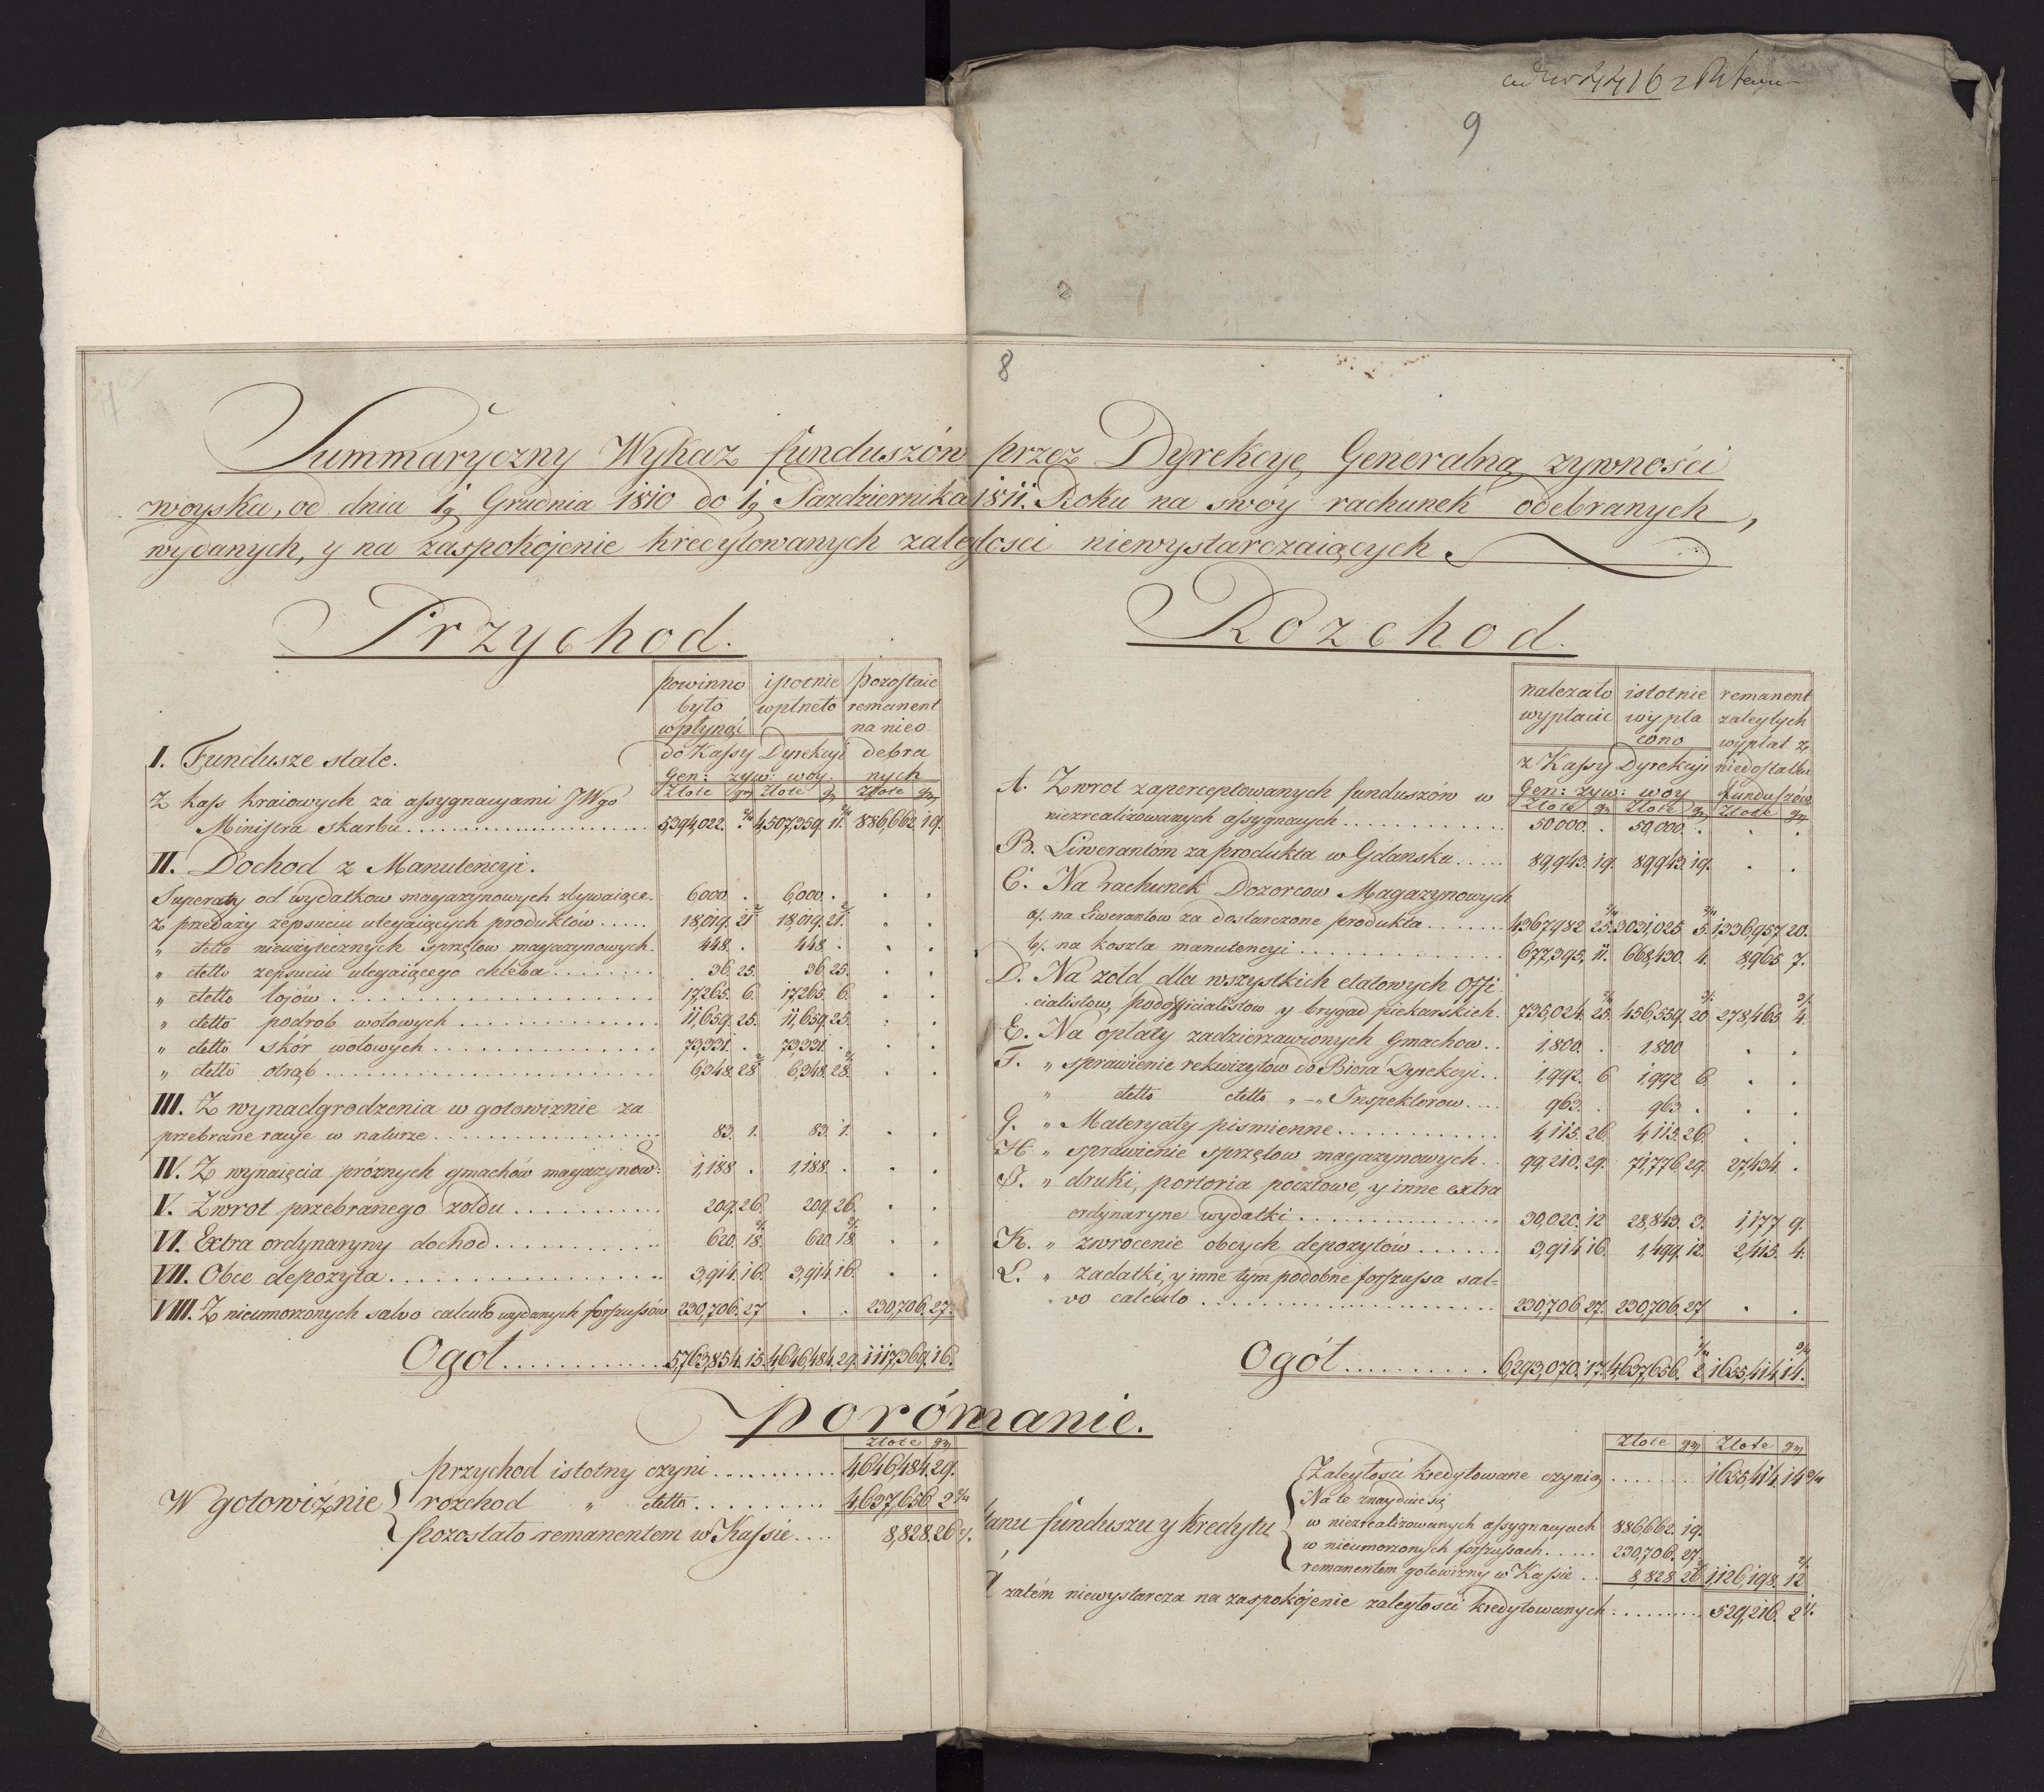 9
8
Summaryczny Wykaz funduszów przez Dyrekcyę Generalną zywności
woyska, od dnia 1g Grudnia 1810 do 1g Pazdziernika 1811. Roku na swóy rachunek odebranych,
wydanych, y na zaspokojenie kredytowanych zaległosci niewystarczaiących.
Przychod.
powinno było wpłynąć | istotnie wpłneło | pozostaie remanent na nieo
do Kassy Dyrekcyi Gen: zyw: woy. | debranych
Złote gr Złote gr Złote gr
I. Fundusze stale.
Z kass kraiowych za assygnacyami JWgo
Ministra skarbu 5,394,022. . 2/10 4,507,359. 11. 2/10 886,662. 19.
II. Dochod z Manutencyi.
Superaty od wydatkow magazynowych zbywaiące. 6000. . 6,000. . . .
z przedaży zepsuciu ulegaiących produktów 18,019. 21 18,019. 21. . .
" detto nieużytecznych sprzętow magazynowych. 448. . 448. . . .
" detto zepsuciu ulegaiącego chleba 36. 25. 36. 25. . .
" detto łojów 17,265. 6. 17,265. 6. . .
" detto podrob wołowych 11,659. 25. 11,659. 25. . .
" detto skór wołowych 73,331. . 73,331. . . .
" detto otrąb 6,348. 28 6,348. 28. . .
III. Z wynadgrodzenia w gotowiznie za
przebrane racye w naturze 83. 1. 83. 1. . .
IV. Z wynaięcia próznych gmachów magazynow: 1,188 . 1,188. . . .
V. Zwrot przebranego zołdu 209. 26. 209. 26. . .
VI. Extra ordynaryny dochod 620. 18. 620. 18. . .
VII. Obce depozyta 3,914. 16. 3,914. 16. . .
VIII. Z nieumorzonych salvo calculo wydanych forszussów 230,706. 27 . . 230,706. 27.
Ogoł 5,763,854. 15. 4,646,484. 29. 1117,369. 16.
Rozchod.
nalezało wypłacic | istotnie wypłacono | remanent zaległych wypłat z
z Kassy Dyrekcyi Gen: zyw: woy | niedostatku funduszów
Złote gr Złote gr Złote gr
A. Zwrot zaperceptowanych funduszów w
niezrealizowanych assygnacyach 50000. . 50,000. . . .
B. Liwerantóm za produkta w Gdansku 89,943. 19. 89,943. 19. . .
C. Na rachunek Dozorcow Magazynowych
a/. na Liwerantow za dostarczone produkta 4367,982 25. 3031,025 5. 1336,957. 20.
b/. na koszta manutencyi 677,395. 11. 668,430. 4. 8,965 7.
D. Na zołd dla wszystkich etatowych Offi
cialistow, podofficialistow y brygad piekarskich. 735,024. 25. 456,559. 20 278,465 4.
E. Na opłaty zadzierzawionych Gmachow 1,800. . 1,800 . .
F. " sprawienie rekwizytow do Biora Dyrekcyi 1,992. 6 1,992 6. . .
" detto detto "–" Inspektorow 963. . 963 . . .
G. " Materyały pismienne 4,115. 26. 4115. 26. . .
H. " sprawienie sprzętow magazynowych. 99,210. 29. 71,776. 29. 27,434. .
J. " druki, portoria pocztowe, y inne extra
ordynaryne wydatki 30,020. 12 28,843. 3. 1,177 9.
K. " zwrócenie obcych depozytów 3,914 16. 1,499. 12. 2,415. 4.
L. " zadatki, y inne tym podobne forszussa sal=
vo calculo 230,706 27. 230,706. 27 . .
Ogół 6,293,070. 17. 4,637,656. 2 1655,414. 14.
porównanie.
Złote gr
W gotowiźnie
przychod istotny czyni 4,646,484. 29.
rozchod " detto 4,637,656 2
pozostało remanentem w Kassie 8,828. 26
Złote gr Złote gr
tanu funduszu y kredytu
Zaległości kredytowane czynią 1655,414. 14
Na te znayduie się
w niezrealizowanych assygnacyach 886,662. 19.
w nieumorzonych forszussach 230,706. 27
remanentem gotowizny w Kassie 8,828 26 1,126,198. 12
A zatém niewystarcza na zaspokojenie zaległosci kredytowanych 529,216. 2